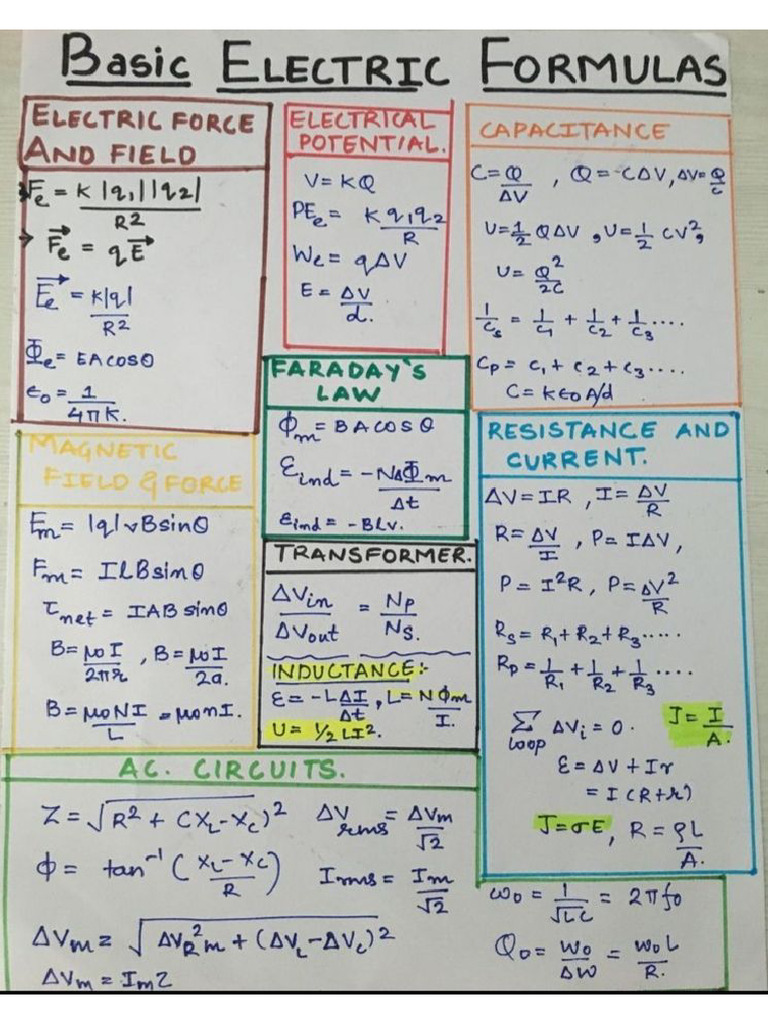 Basic ELECTRIC FORMULAS
ELECTRIC FORCE
AND FIELD
Fe = K|q1||q2|/R²
→ F⃗e = qE⃗
E⃗e = K|q|/R²
Φe = EA cosθ
ϵ0 = 1/4πK.
ELECTRICAL
POTENTIAL.
V = KQ
PEe = Kq1q2/R
We = qΔV
E = ΔV/d.
CAPACITANCE
C = Q/ΔV , Q = CΔV, ΔV = Q/C
U = 1/2 QΔV , U = 1/2 CV²,
U = Q²/2C
1/Cs = 1/C1 + 1/C2 + 1/C3 ....
Cp = C1 + C2 + C3 ....
C = Kϵ0A/d
FARADAY'S
LAW
Φm = BACOSθ
Ɛind = -NΔΦm/Δt
Ɛind = -BLV.
MAGNETIC
FIELD & FORCE
Fm = |q|vBsinθ
Fm = ILBsinθ
τnet = IAB sinθ
B = μ0I/2πr , B = μ0I/2a.
B = μ0NI/L = μ0nI.
TRANSFORMER.
ΔVin/ΔVout = Np/Ns.
INDUCTANCE:-
Ɛ = -LΔI/Δt , L = NΦm/I.
U = 1/2 LI².
RESISTANCE AND
CURRENT.
ΔV = IR , I = ΔV/R
R = ΔV/I , P = IΔV,
P = I²R , P = ΔV²/R
Rs = R1 + R2 + R3 .....
Rp = 1/R1 + 1/R2 + 1/R3 ....
Σloop ΔVi = 0. J = I/A.
Ɛ = ΔV + Ir
= I(R+r)
J = σE, R = ρL/A.
AC. CIRCUITS.
Z = √R² + (XL-XC)² ΔVrms = ΔVm/√2
Φ = tan⁻¹(XL-XC/R) Irms = Im/√2
ΔVm = √ΔVR²m + (ΔVL-ΔVC)²
ΔVm = ImZ
ω0 = 1/√LC = 2πf0
Q0 = ω0/Δω = ω0L/R.